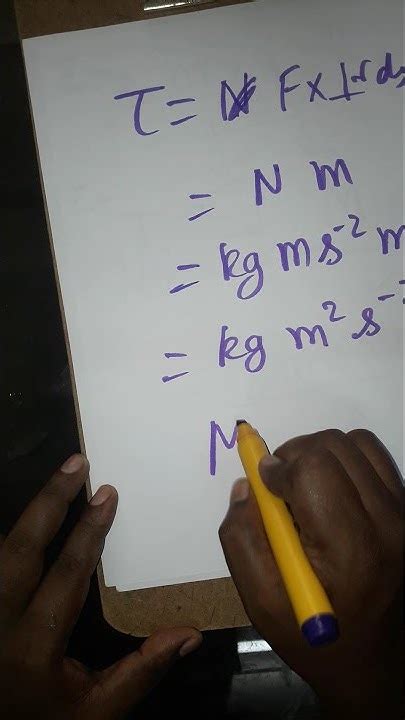 τ = F × ⊥r dis
= N m
= kg m s⁻² m
= kg m² s⁻²
M